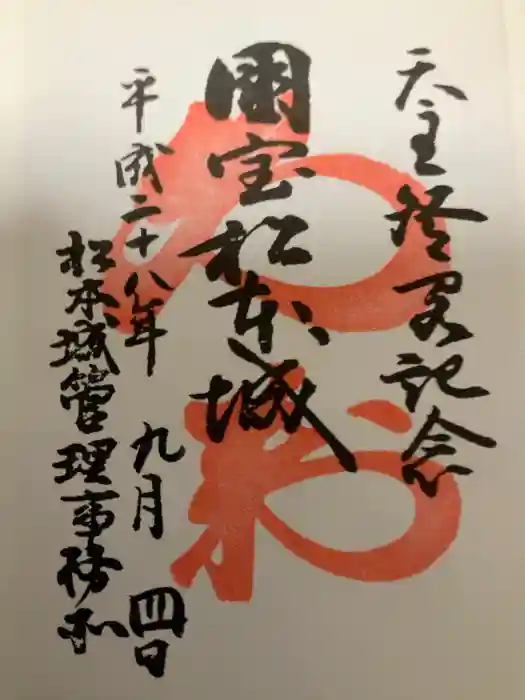 天主登閣記念
国宝松本城
平成二十八年 九月 四日
松本城管理事務所